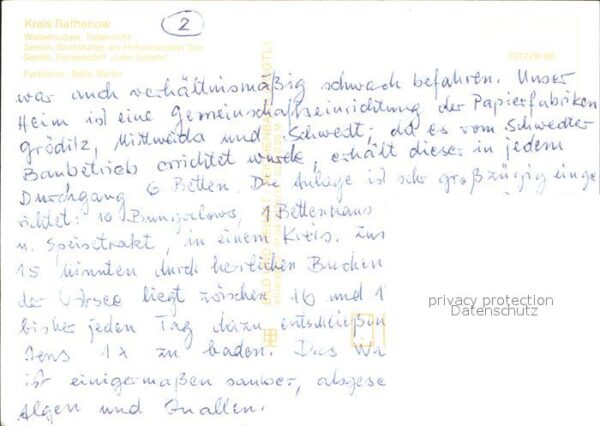 Kreis Rathenow
2
Wassersuppe, Teilansicht
Semlin, Bootshafen am Hohennauener See
Semlin, Ferienschiff „John Schehr“
Farbfotos: Seile, Berlin
war auch verhältnismäßig schwach befahren. Unser
Heim ist eine Gemeinschaftseinrichtung der Papierfabriken
Gröditz, Mittweida und Schwedt; da es vom Schwedter
Baubetrieb errichtet wurde, erhält dieser in jedem
Durchgang 6 Betten. Die Anlage ist sehr großzügig einge
richtet: 10 Bungalows, 1 Bettenhaus
u. Speisetrakt, in einem Kreis. Zur
15 Minuten durch herrlichen Buchen
der Ostsee liegt zwischen 16 und 1
bisher jeden Tag dazu entschließen
stens 1x zu baden. Das Wa
ist einigermaßen sauber, abgese
Algen und Quallen.
privacy protection
Datenschutz